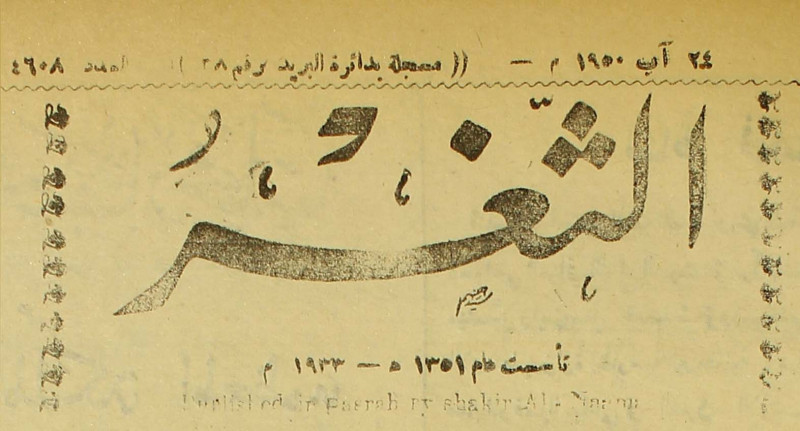 ٢٤ آب ١٩٥٠ م — (( مسجلة بدائرة البريد برقم ٢٨ )) العدد ٤٦٠٨
الثغر
تأسست عام ١٣٥١ ه — ١٩٣٣ م
Published in Basrah by Shakir Al-